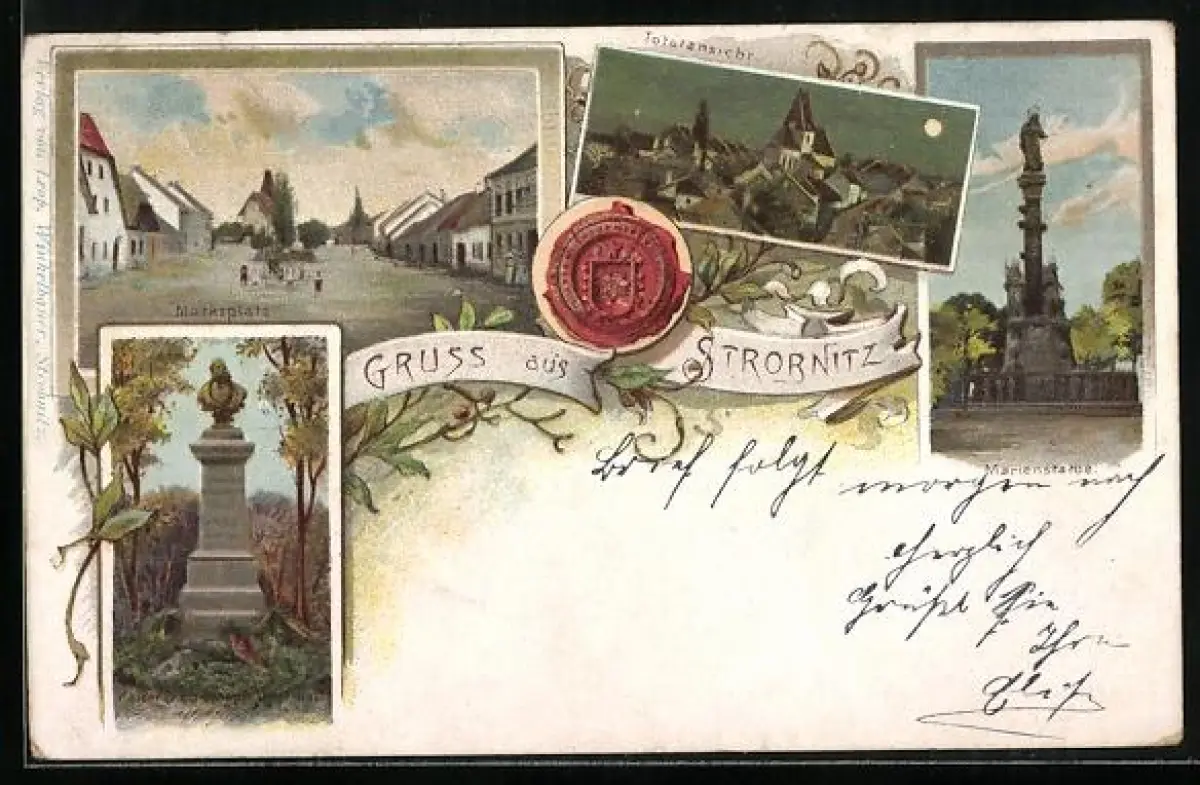 Totalansicht
Marktplatz
GRUSS aus STROBNITZ
Marienstatue.
Verlag von Leop. Strobnitz.
Brief folgt morgen nach
Herzlich
Grüßt Sie
Ihre